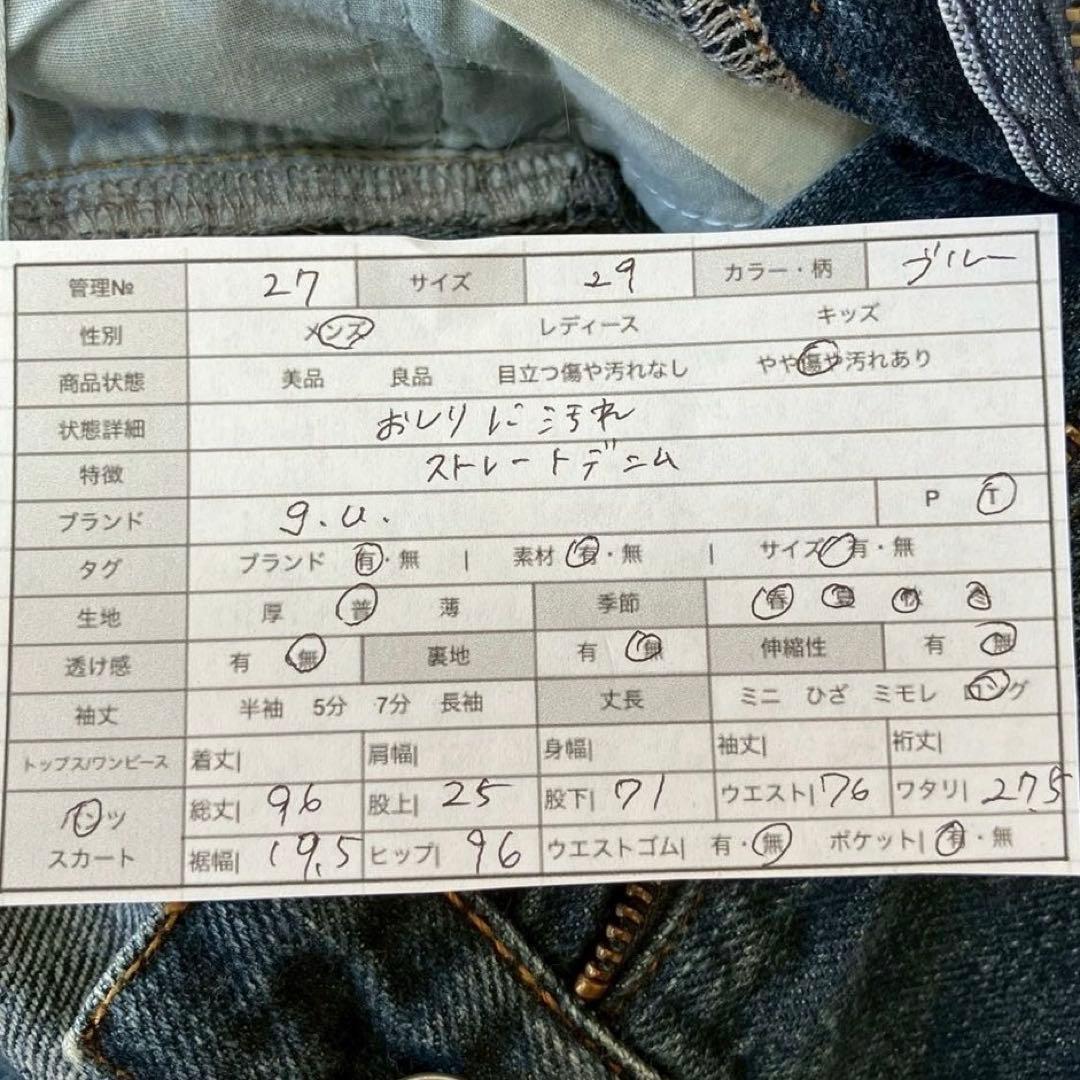 管理№ 27 サイズ 29 カラー・柄 ブルー
性別 メンズ レディース キッズ
商品状態 美品 良品 目立つ傷や汚れなし やや傷や汚れあり
状態詳細 おしりに汚れ
特徴 ストレートデニム
ブランド g.u. P T
タグ ブランド 有・無 | 素材 有・無 | サイズ 有・無
生地 厚 普 薄 季節 春 夏 秋 冬
透け感 有 無 裏地 有 無 伸縮性 有 無
袖丈 半袖 5分 7分 長袖 丈長 ミニ ひざ ミモレ ロング
トップス/ワンピース 着丈| 肩幅| 身幅| 袖丈| 裄丈|
パンツ 総丈| 96 股上| 25 股下| 71 ウエスト| 76 ワタリ| 27.5
スカート 裾幅| 19.5 ヒップ| 96 ウエストゴム| 有・無 ポケット| 有・無